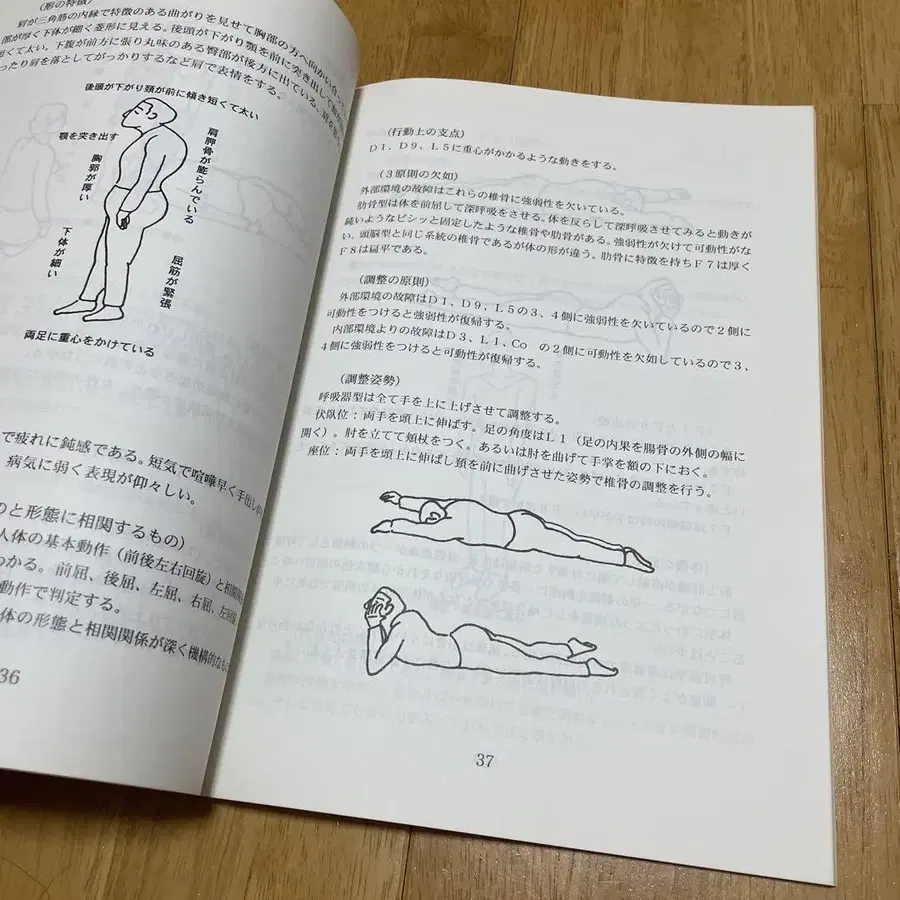 (形の特徴)
肩が三角筋の内縁で特徴のある曲がりを見せて胸部の方へ向かい
部が厚く下体が細く菱形に見える。後頭が下がり顎を前に突き出して
短くて太い。下腹が前方に張り丸味のある臀部が後方に出ている。
ったり肩を落としてがっかりするなど肩で表情をする。
後頭が下がり頚が前に傾き短くて太い
顎を突き出す
胸郭が厚い
肩胛骨が膨らんでいる
下体が細い
屈筋が緊張
両足に重心をかけている
で疲れに鈍感である。短気で喧嘩早く手出し
病気に弱く表現が仰々しい。
りと形態に相関するもの)
人体の基本動作(前後左右回旋)と相関
わかる。前屈、後屈、左屈、右屈、左回
動作で判定する。
体の形態と相関関係が深く機構的な
36
(行動上の支点)
D1、D9、L5に重心がかかるような動きをする。
(3原則の欠如)
外部環境の故障はこれらの椎骨に強弱性を欠いている。
肋骨型は体を前屈して深呼吸をさせる。体を反らして深呼吸させてみると動きが
鈍いようなピシッと固定したような椎骨や肋骨がある。強弱性が欠けて可動性がな
い。頭脳型と同じ系統の椎骨であるが体の形が違う。肋骨に特徴を持ちF7は厚く
F8は扁平である。
(調整の原則)
外部環境の故障はD1、D9、L5の3、4側に強弱性を欠いているので2側に
可動性をつけると強弱性が復帰する。
内部環境よりの故障はD3、L1、Co の2側に可動性を欠如しているので3、
4側に強弱性をつけると可動性が復帰する。
(調整姿勢)
呼吸器型は全て手を上に上げさせて調整する。
伏臥位：両手を頭上に伸ばす。足の角度はL1(足の内果を腸骨の外側の幅に
開く)。肘を立てて頬杖をつく。あるいは肘を曲げて手掌を額の下におく。
座位：両手を頭上に伸ばし頚を前に曲げさせた姿勢で椎骨の調整を行う。
37